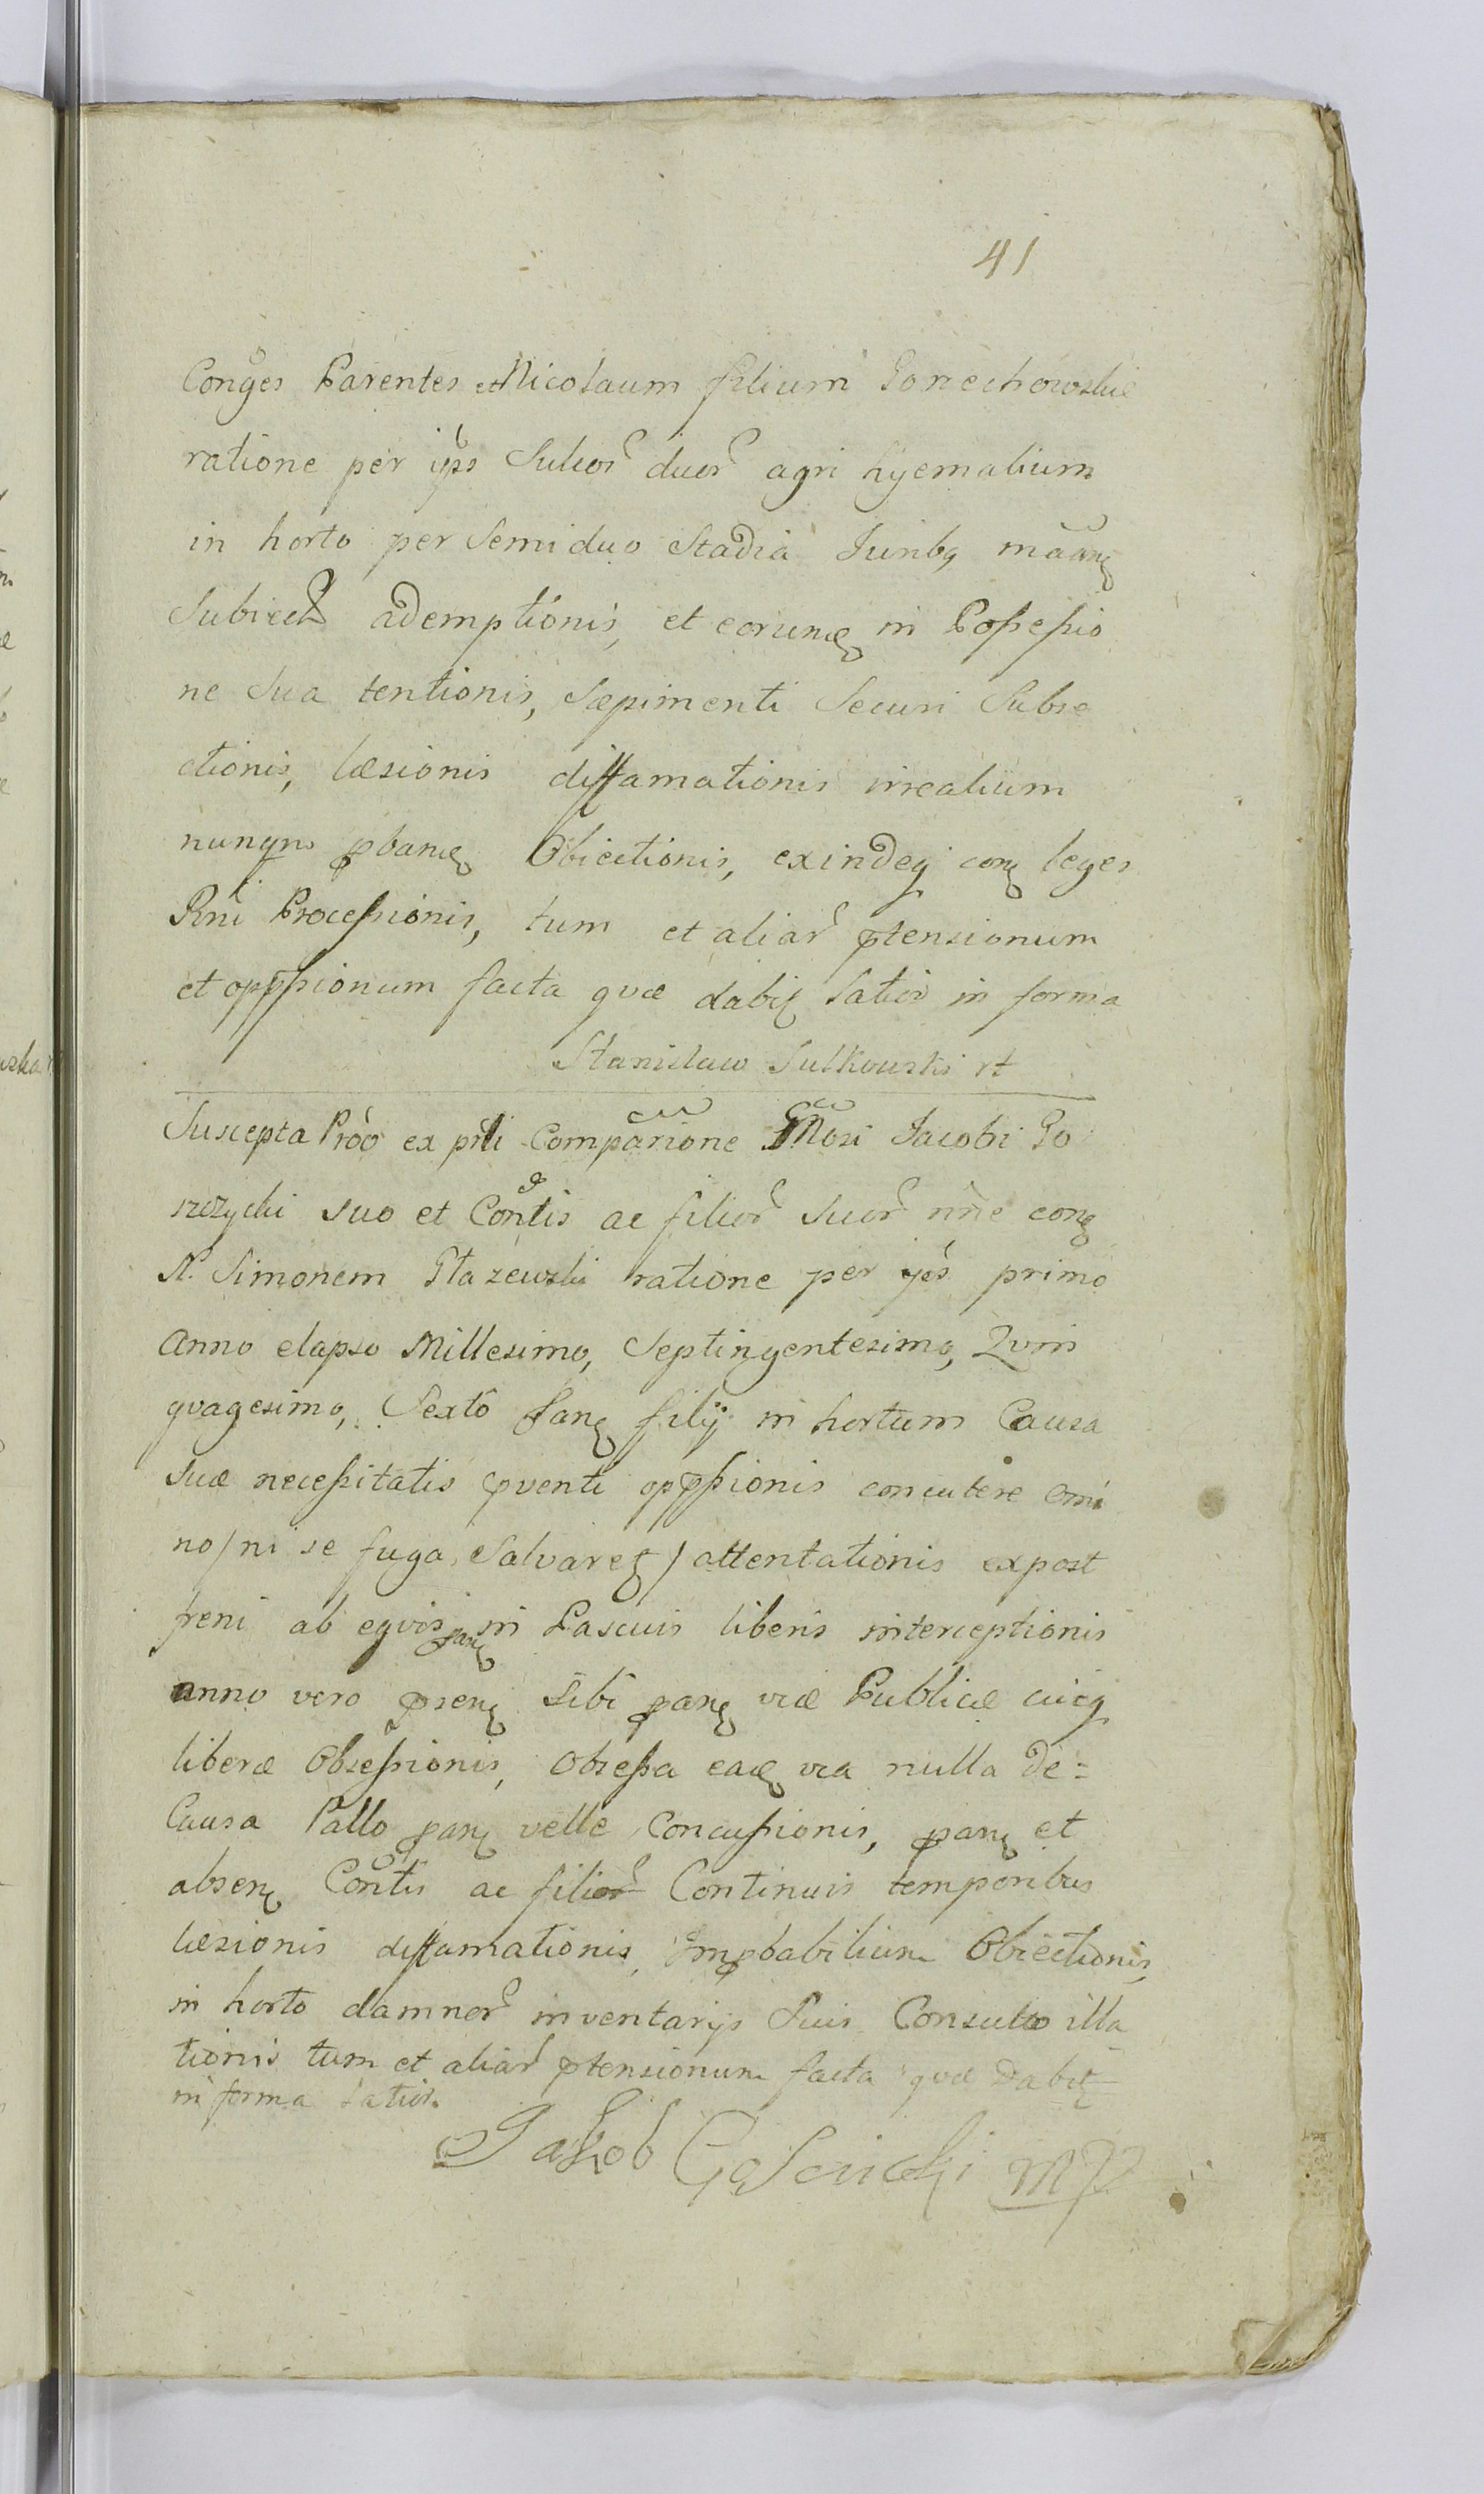 41
Conges Parentes et Nicolaum filium Gorzechowskie
ratione per ips Sulcor duor agri hyemalium
in horto per Semi duo Stadia Funibq
Subiect ademptionis, et eorunq in Poßeßio
ne Sua tentionis, Sæpimenti Securi Subse
ctionis, læsionis diffamationis irrealium
nunqm pbanq Obiectionis, exindeq conq leges
Rni Proceßionis, tum et aliar ptensionum
et oppßionum facta quæ dabit latior in forma
Stanislaw Sulkowski rt
Suscepta Prõo ex pnli Comparione Gnosi Jacobi Go
srzycki suo et Contis ac filior Suor nne conq
N. Simonem Głazewski ratione per ips primo
Anno elapso Millesimo, Septingentesimo, Quin
quagesimo, Sexto panq filij in hortum Causa
suæ neceßitatis pventi oppßionis concutere omi
no/ni se fuga Salvaret/ attentationis expost
freni ab equis panq in Pascuis liberis interceptionis
anno vero psenq Sibi panq viæ Publicæ cuiq
liberæ Obseßionis, Obseßa eadq via nulla de=
Causa Pallo panq velle Concußionis, panq et
absenq Contis ac filior Continuis temporibus
læsionis diffamationis, Impbabilium Obiectionis,
in horto damnor inventarijs Suis Consulto illa
tionis tum et aliar ptensionum facta quæ dabit
in forma latior.
Jakob Gościcki mp